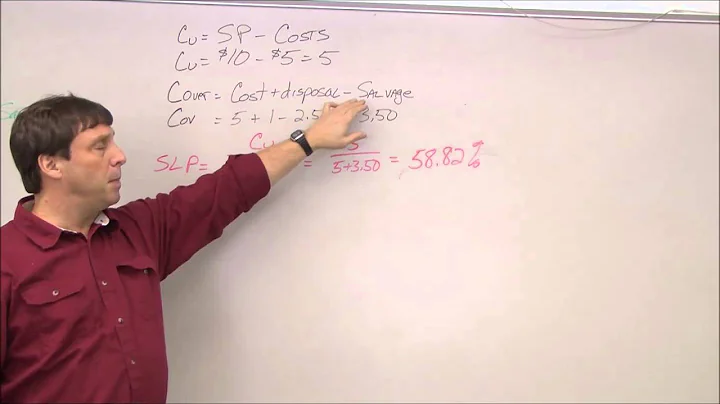 Cu = SP - COSTS
Cu = $10 - $5 = 5
Cover = Cost + disposal - SALvage
Cov = 5 + 1 - 2.5 3.50
SLP = Cu = 5 / 5+3.50 = 58.82%